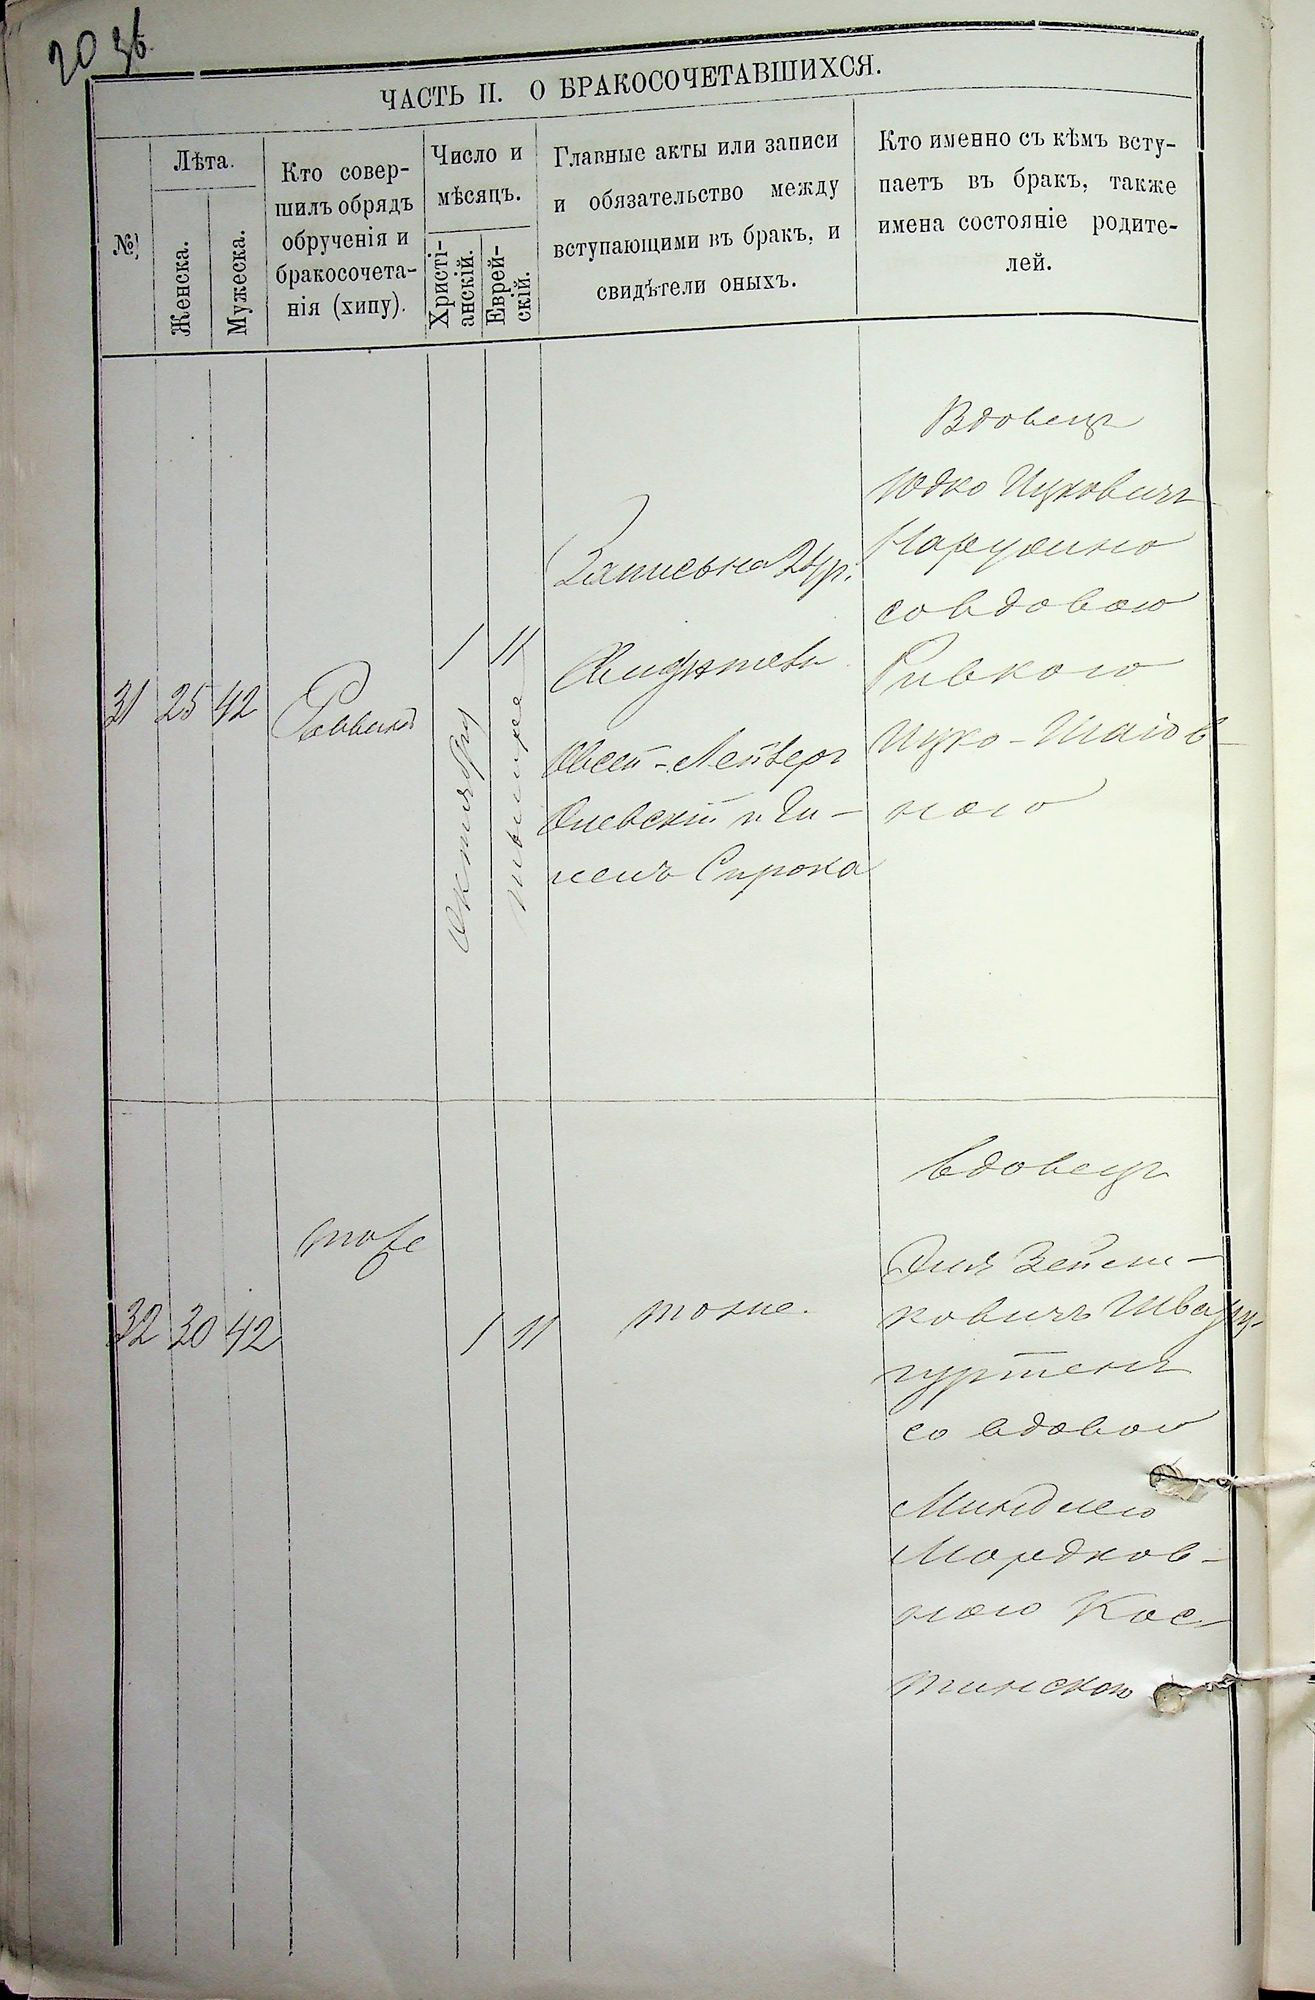 20 зв.
ЧАСТЬ II. О БРАКОСОЧЕТАВШИХСЯ.
№
Лѣта.
Женска.
Мужеска.
Кто совер-
шилъ обрядъ
обрученія и
бракосочета-
нія (хипу).
Число и
мѣсяцъ.
Христі-
анскій.
Еврей-
скій.
Главные акты или записи
и обязательство между
вступающими въ бракъ, и
свидѣтели оныхъ.
Кто именно съ кѣмъ всту-
паетъ въ бракъ, также
имена состояніе родите-
лей.
31
25
42
Раввинъ
1
Октября
11
тышре
Запись на 24 р.
Свидѣтели
Овсей-Лейзеръ
Сирока
Вдовецъ
Юдко Ицковичъ
со вдовою
Ривкою
Ицко-Шаіов-
ною
32
30
42
тоже
1
11
тоже.
вдовецъ
Зельм-
ковичъ Шварц-
со вдовою
Миндлею
Мордков-
ною Кос-
тинскою